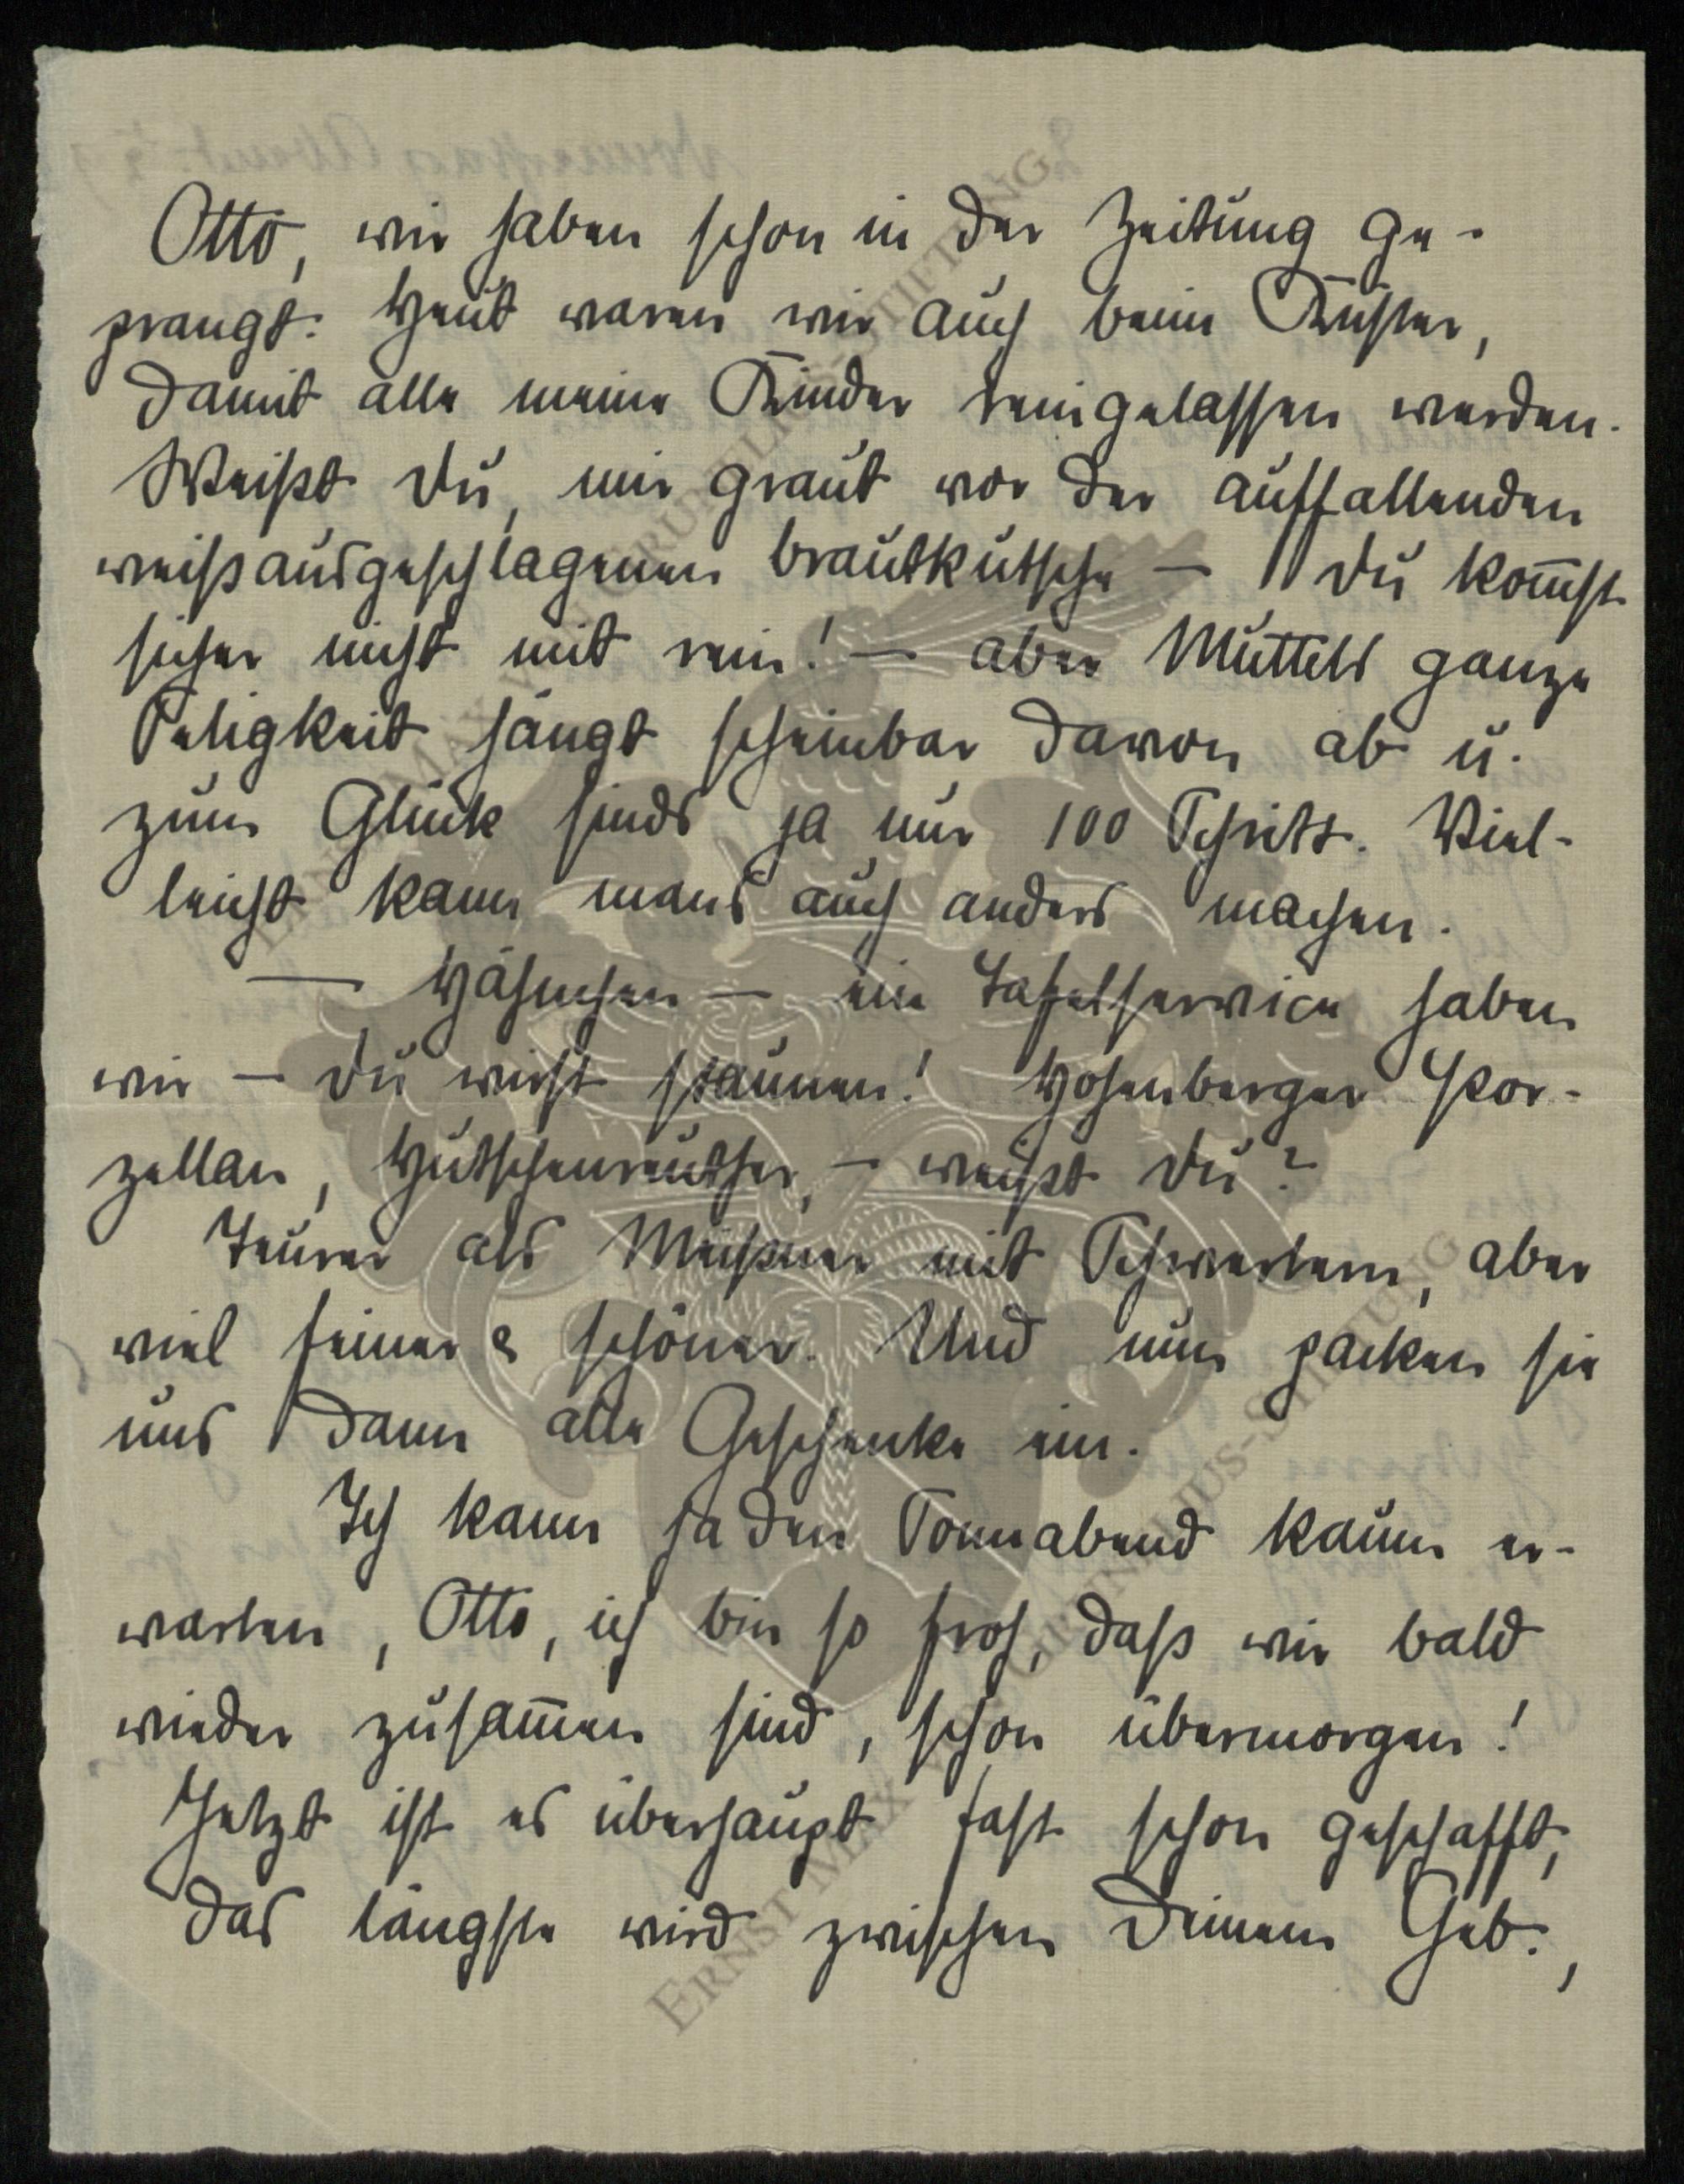 Otto, wir haben schon in der Zeitung ge-
prangt. Heut waren wir auch beim Küster,
damit alle meine Kinder reingelassen werden.
Weißt Du, mir graut vor der auffallenden
weißausgeschlagenen Brautkutsche – Du kom̅st
sicher nicht mit rein! – aber Muttels ganze
Seligkeit hängt scheinbar davon ab u.
zum Glück sinds ja nur 100 Schritt. Viel-
leicht kann mans auch anders machen.
— Häschen – ein Tafelservice haben
wir – Du wirst staunen! Hohenberger Por-
zellan, Hutschenreuther, – weißt Du?
Teurer als Meißner mit Schwertern, aber
viel feiner & schöner. Und nun packen sie
uns dann alle Geschenke ein.
Ich kann ja den Sonnabend kaum er-
warten, Otto, ich bin so froh, daß wir bald
wieder zusam̅en sind, schon übermorgen!
Jetzt ist es überhaupt fast schon geschafft,
das längste wird zwischen Deinem Geb.,